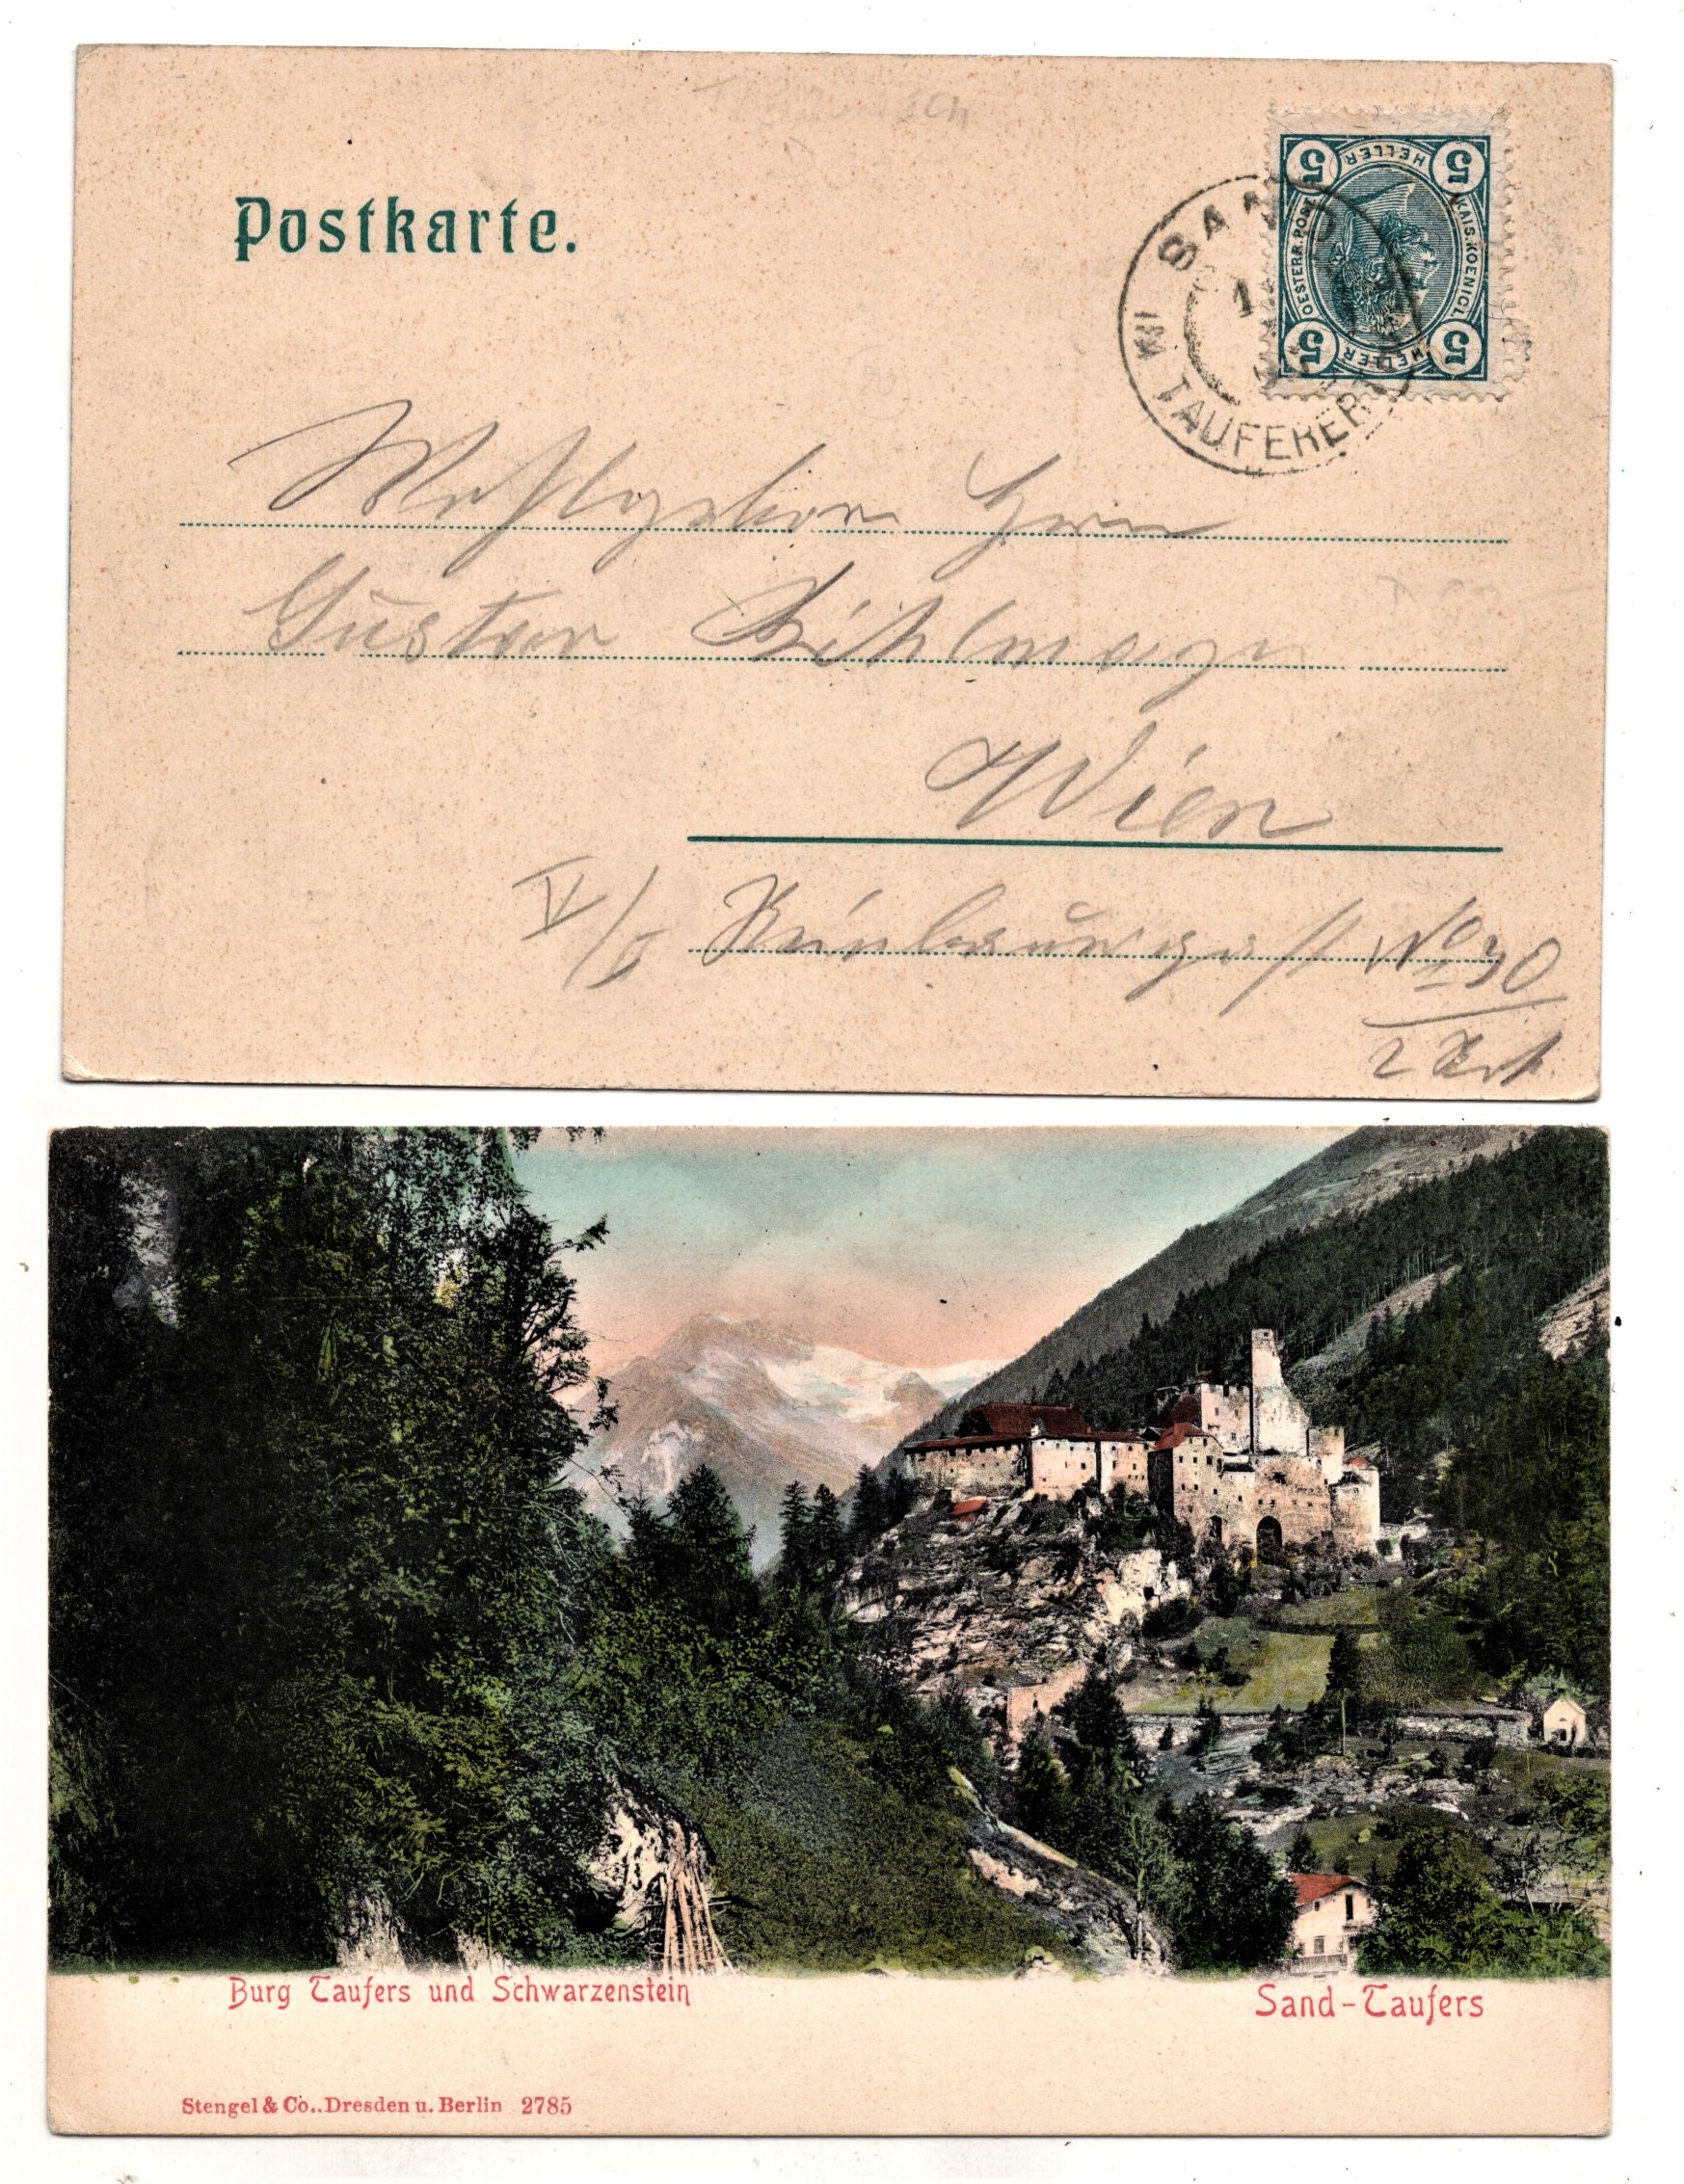 Postkarte.
5 HELLER 5
KAIS. KOENIGL. OESTERR. POST
5 HELLER 5
SAND
IM TAUFERERT
Wohlgeboren Herrn
Gustav
Wien
V/I No 30
2
Burg Taufers und Schwarzenstein
Sand-Taufers
Stengel & Co., Dresden u. Berlin 2785